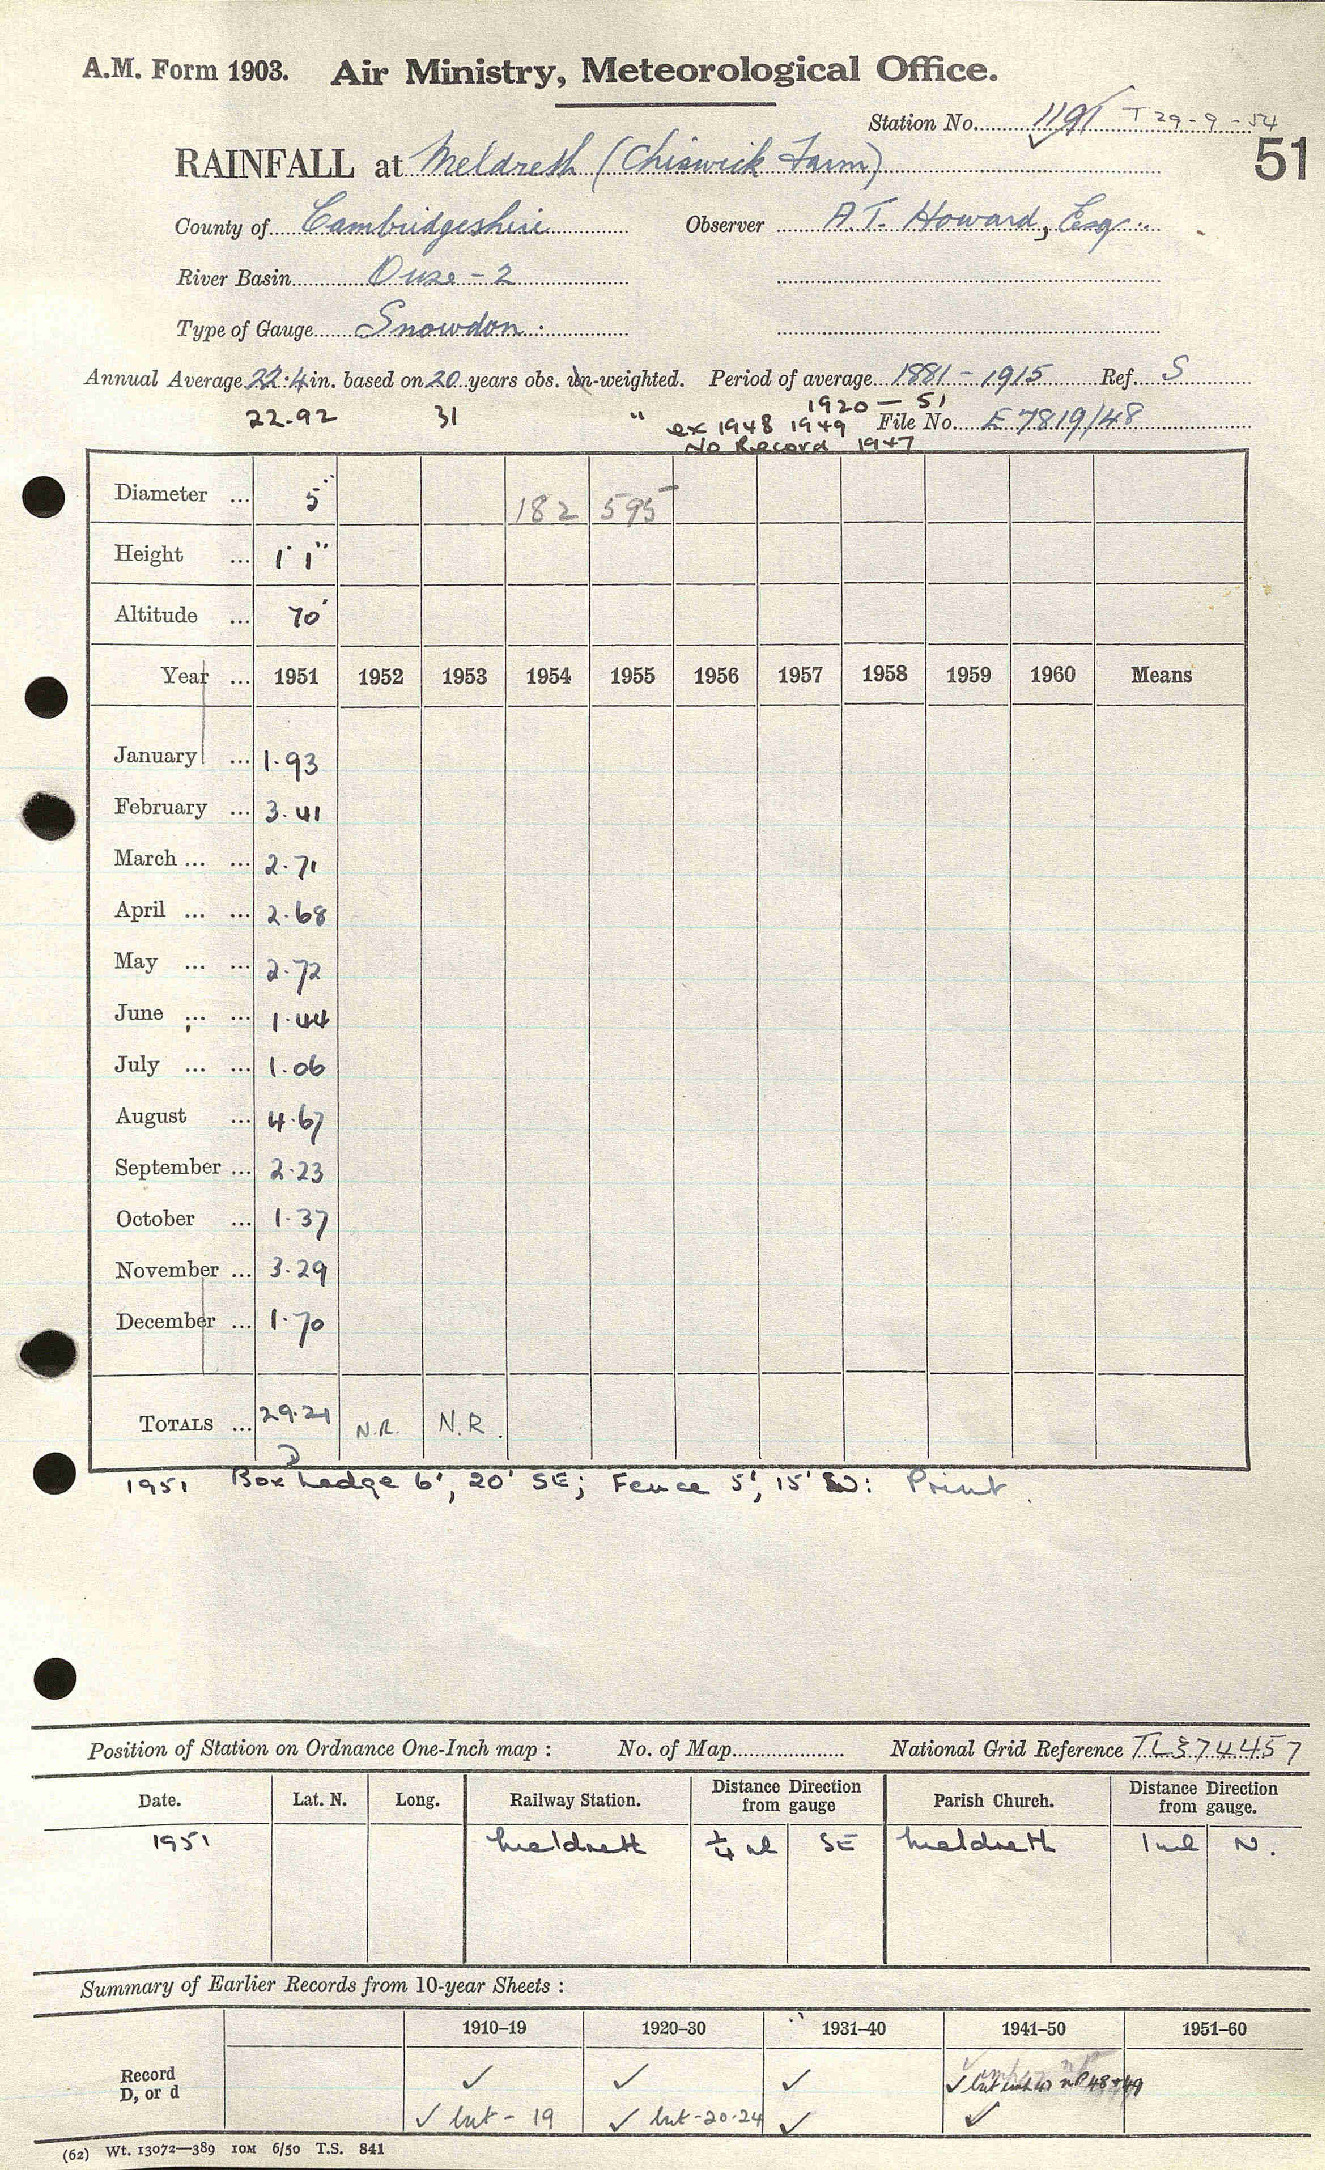 A.M. Form 1903. Air Ministry, Meteorological Office.
Station No. 1191 T 29-9-54
51
RAINFALL at Meldreth (Chiswick Farm)
County of Cambridgeshire Observer A.T. Howard, Esq.
River Basin Ouse - 2
Type of Gauge Snowdon
Annual Average 22.4 in. based on 20 years obs. un-weighted. Period of average 1881 - 1915 Ref. S
22.92 31 " 1920 - 51
ex 1948 1949 File No. E 7819/48
No Record 1947
Diameter ... 5" 182 595
Height ... 1' 1"
Altitude ... 70'
Year ... 1951 1952 1953 1954 1955 1956 1957 1958 1959 1960 Means
January ... 1.93
February ... 3.41
March ... ... 2.71
April ... ... 2.68
May ... ... 2.72
June ... ... 1.44
July ... ... 1.06
August ... 4.67
September ... 2.23
October ... 1.37
November ... 3.29
December ... 1.70
TOTALS ... 29.21 N.R. N.R.
D
1951 Box hedge 6', 20' SE; Fence 5', 15' W: Print
Position of Station on Ordnance One-Inch map : No. of Map National Grid Reference TL374457
Date. Lat. N. Long. Railway Station. Distance Direction from gauge Parish Church. Distance Direction from gauge.
1951 Meldreth ¼ ml SE Meldreth 1 ml N.
Summary of Earlier Records from 10-year Sheets :
1910–19 1920–30 1931–40 1941–50 1951–60
Record D, or d ✓ ✓ ✓ ✓ but 48+49
✓ but - 19 ✓ but - 20-24 ✓ ✓
(62) Wt. 13072—389 10M 6/50 T.S. 841